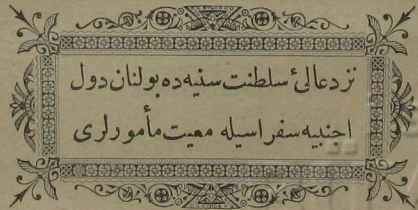 نزد عالیٔ سلطنت سنیه‌ده بولنان دول
اجنبیه سفراسیله معیت مأمورلری